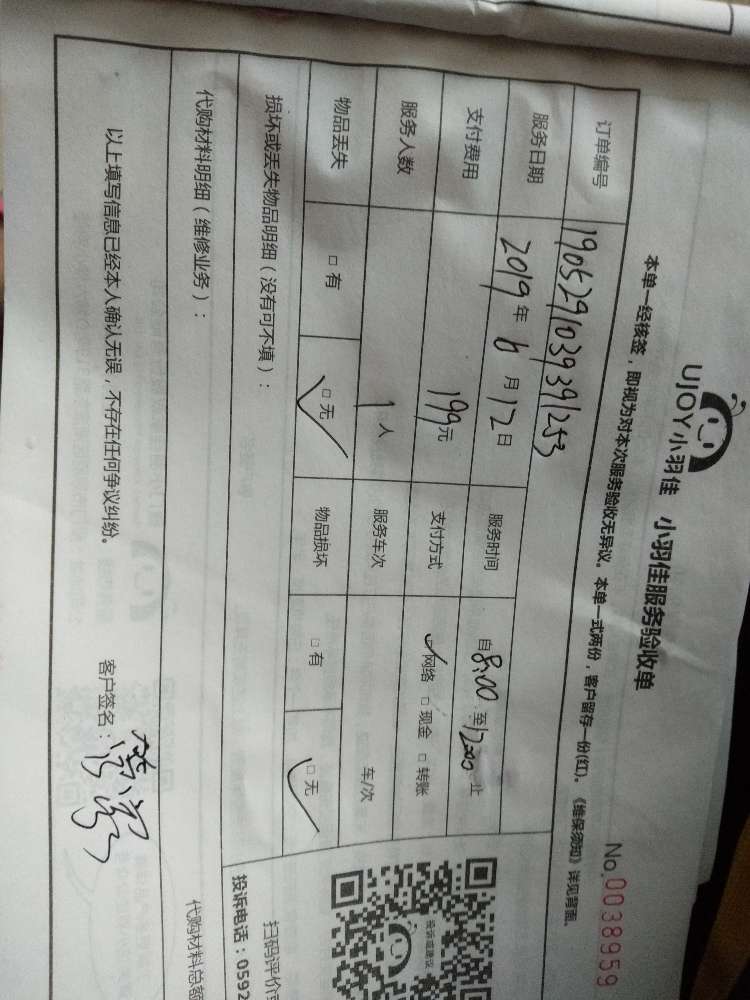 UJOY小羽佳 小羽佳服务验收单
No.0038959
本单一经核签，即视为对本次服务验收无异议。本单一式两份，客户留存一份(红)。《维保须知》详见背面。
订单编号 1905291039391253
服务日期 2019年6月12日 服务时间 自8:00至12:00止
支付费用 199元 支付方式 网络 □现金 □转账
服务人数 1人 服务车次 车/次
物品丢失 □有 □无 物品损坏 □有 □无
损坏或丢失物品明细（没有可不填）：
扫码评价
投诉建议
投诉电话：0592
代购材料明细（维修业务）：
代购材料总额
以上填写信息已经本人确认无误，不存在任何争议纠纷。 客户签名：